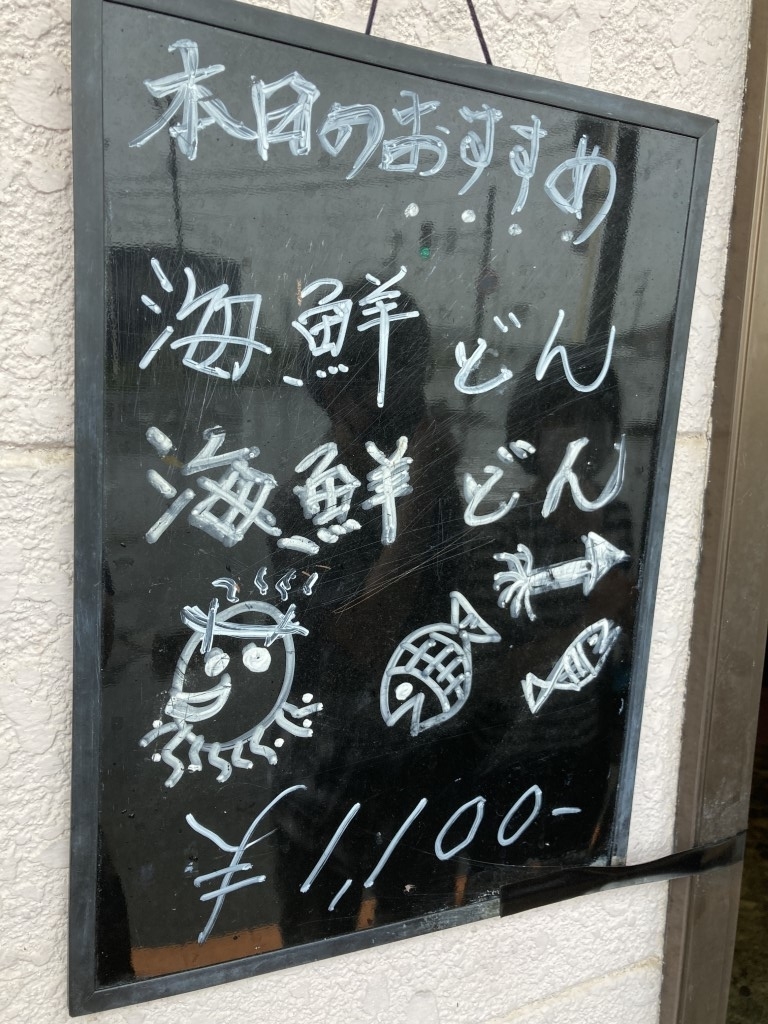 本日のおすすめ
海鮮どん
海鮮どん
¥1,100-